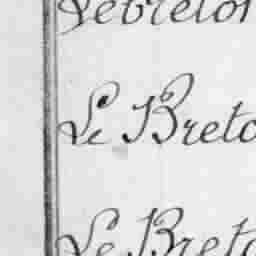 Lebreton
Le Breto
Le Breto